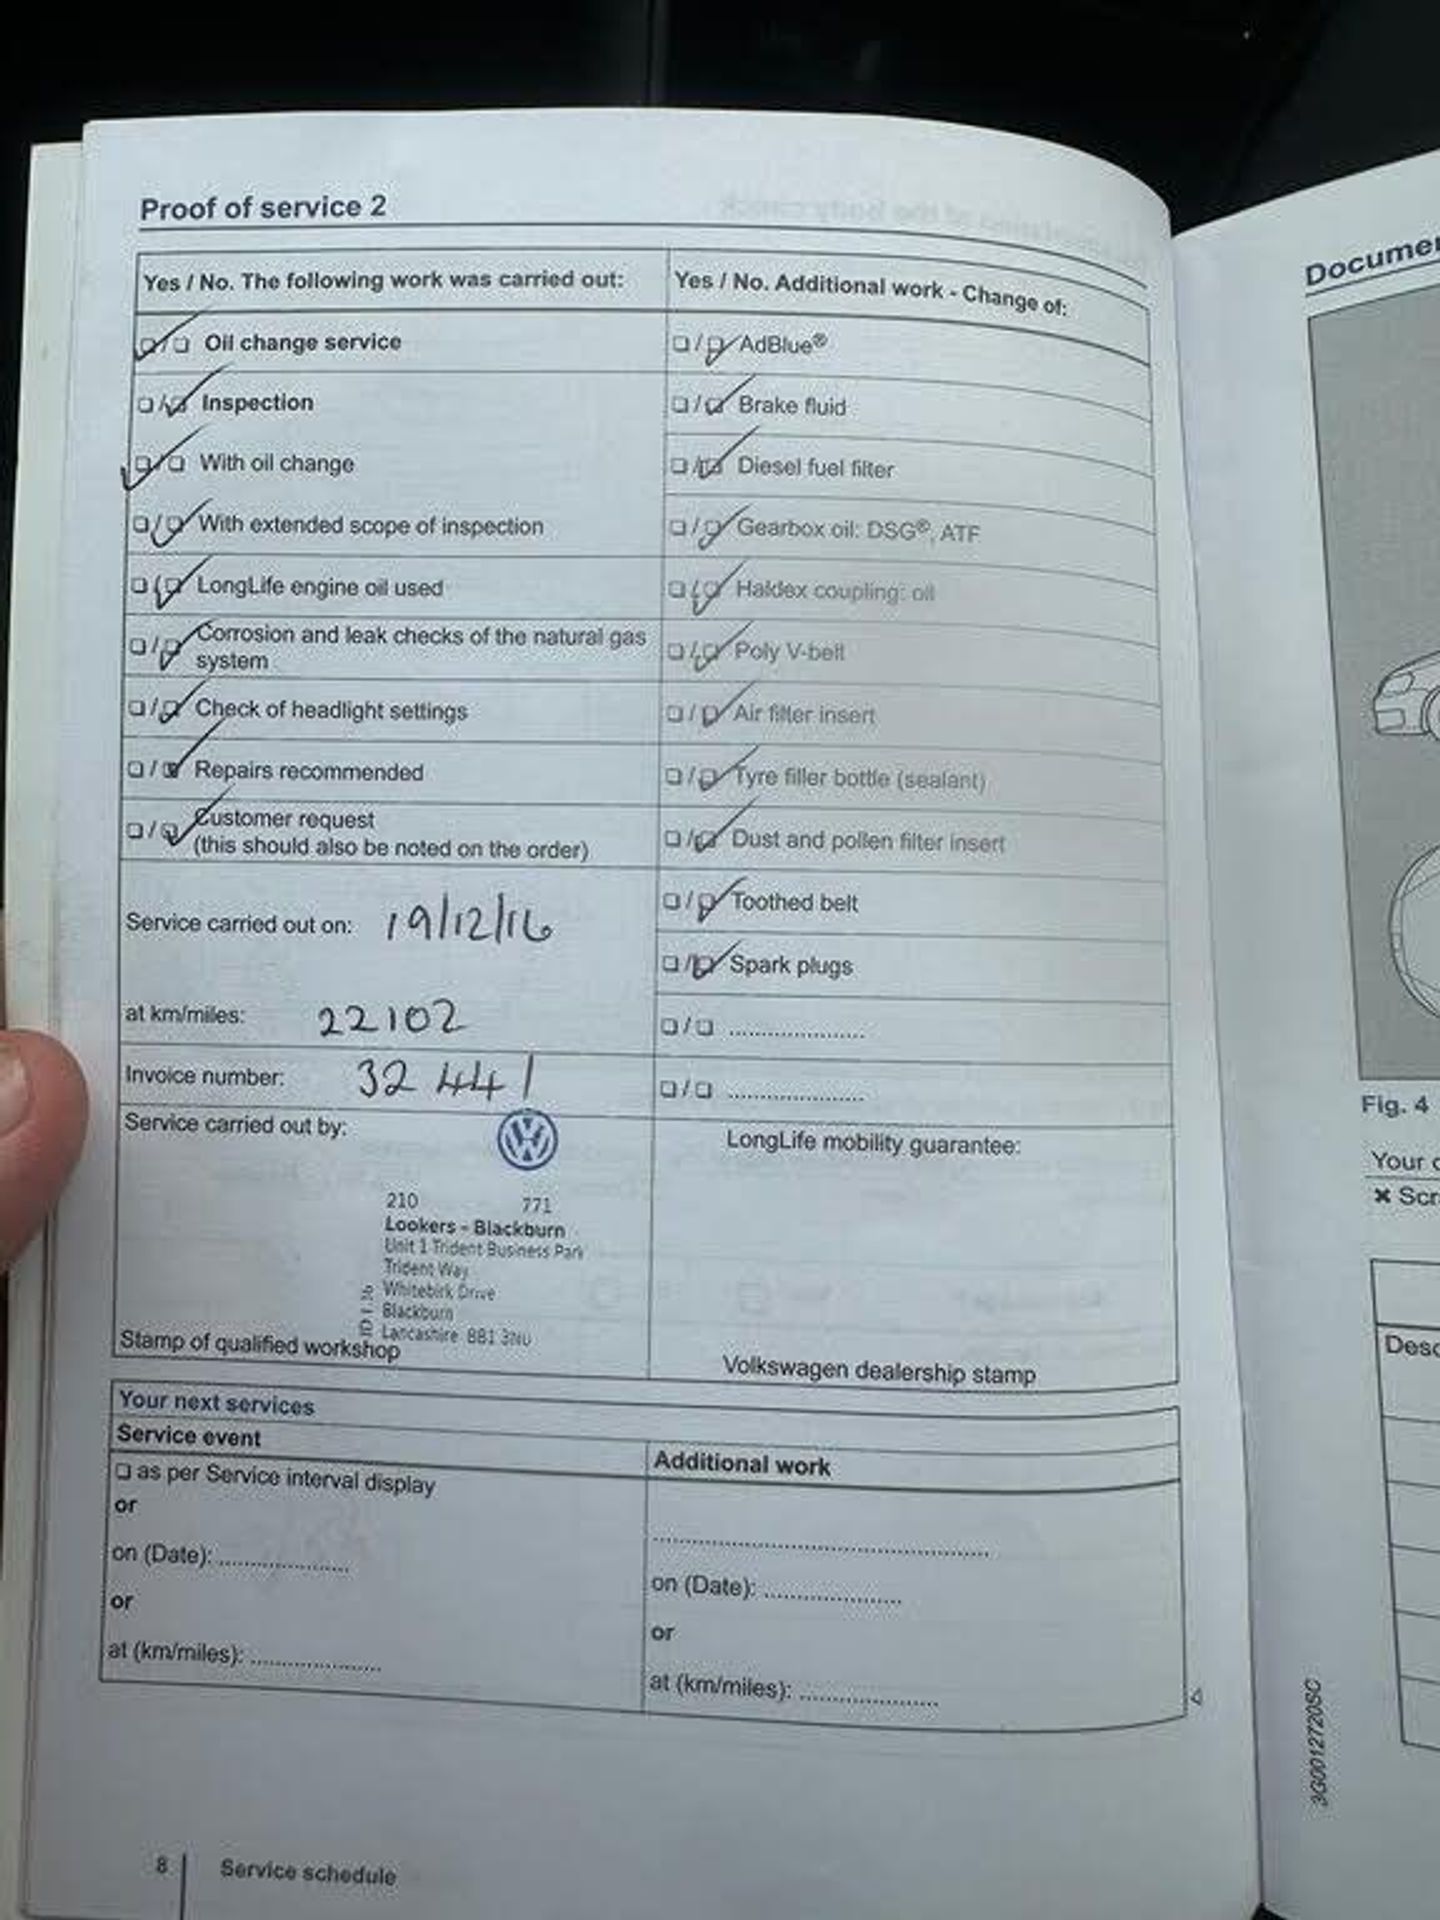 Proof of service 2
Yes / No. The following work was carried out:
❑/❑ Oil change service
❑/❑ Inspection
❑/❑ With oil change
❑/❑ With extended scope of inspection
❑/❑ LongLife engine oil used
❑/❑ Corrosion and leak checks of the natural gas
system
❑/❑ Check of headlight settings
❑/❑ Repairs recommended
❑/❑ Customer request
(this should also be noted on the order)
Service carried out on: 19/12/16
at km/miles: 22102
Invoice number: 32441
Service carried out by:
210 771
Lookers - Blackburn
Unit 1 Trident Business Park
Trident Way
Whitebirk Drive
Blackburn
Lancashire BB1 3NU
Stamp of qualified workshop
Yes / No. Additional work - Change of:
❑/❑ AdBlue®
❑/❑ Brake fluid
❑/❑ Diesel fuel filter
❑/❑ Gearbox oil: DSG®, ATF
❑/❑ Haldex coupling: oil
❑/❑ Poly V-belt
❑/❑ Air filter insert
❑/❑ Tyre filler bottle (sealant)
❑/❑ Dust and pollen filter insert
❑/❑ Toothed belt
❑/❑ Spark plugs
❑/❑ ....................
❑/❑ ....................
LongLife mobility guarantee:
Volkswagen dealership stamp
Your next services
Service event
❑ as per Service interval display
or
on (Date): ....................
or
at (km/miles): ....................
Additional work
..................................................
on (Date): ....................
or
at (km/miles): ....................
8 Service schedule
Fig. 4
Your
3G0012720SC